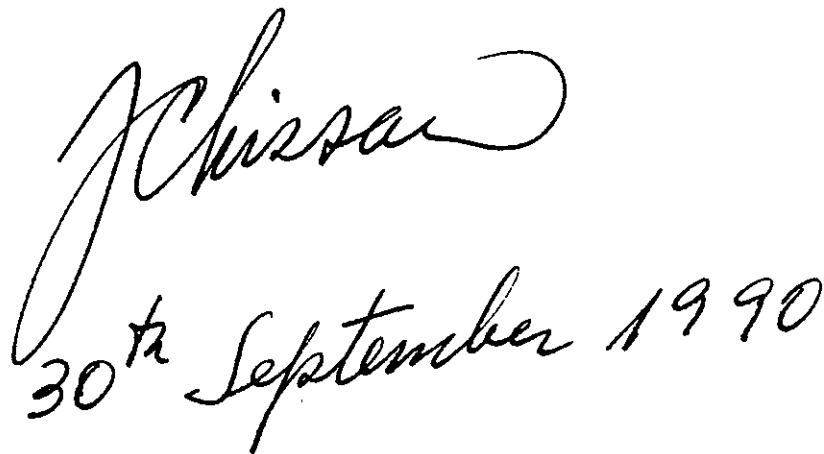 JChissano
30th September 1990